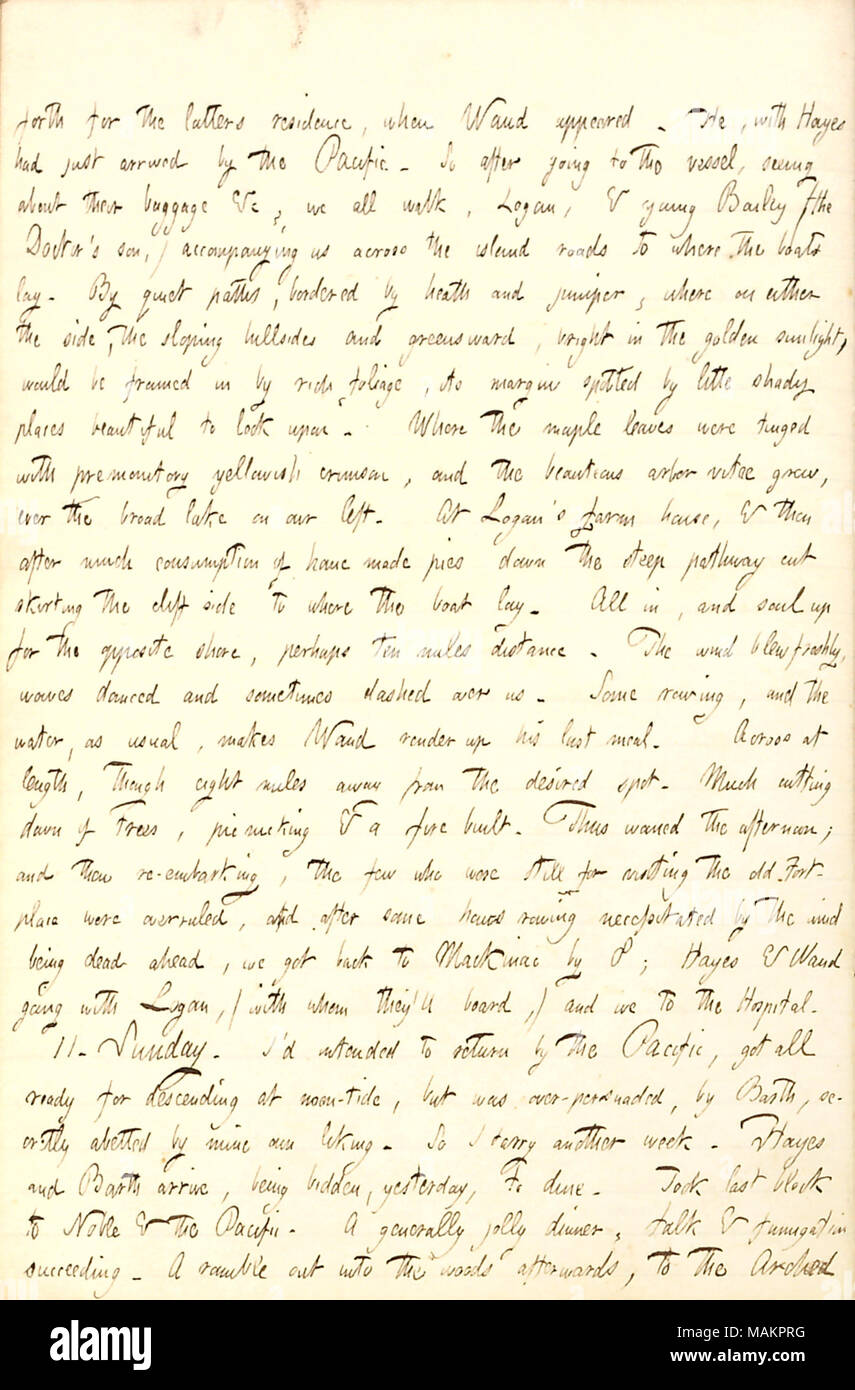 forth for the latters residence, when Waud appeared. He, with Hayes
had just arrived by the Pacific. So after going to the vessel, seeing
about their baggage &c, we all walk, Logan, & young Bailey (the
Doctor's son,) accompanying us across the island roads to where the boats
lay. By quiet paths, bordered by heath and juniper, where on either
the side, the sloping hillsides and greensward, bright in the golden sunlight,
would be framed in by rich foliage, its margin spotted by little shady
places beautiful to look upon. Where the maple leaves were tinged
with premonitory yellowish crimson, and the beauteous arbor vitae grew,
over the broad lake on our left. At Logan's farm house, & then
after much consumption of home made pies down the steep pathway cut
skirting the cliff side to where the boat lay. All in, and sail up
for the opposite shore, perhaps ten miles distance. The wind blew freshly,
waves danced and sometimes dashed over us. Some rowing, and the
water, as usual, makes Waud render up his last meal. Across at
length, though eight miles away from the desired spot. Much cutting
down of trees, picnicking & a fire built. Thus waned the afternoon;
and then re-embarking, the few who were still for visiting the old Fort-
place were overruled, and after some hours rowing necessitated by the wind
being dead ahead, we got back to Mackinac by 8; Hayes & Waud
going with Logan, (with whom they'll board,) and we to the Hospital.
11. Sunday. I'd intended to return by the Pacific, got all
ready for descending at noon-tide, but was over-persuaded, by Barth, se-
cretly abetted by mine own liking. So I tarry another week. Hayes
and Barth arrive, being bidden, yesterday, to dine. Took last look
to Noble & the Pacific. A generally jolly dinner, talk & fumigation
succeeding. A ramble out into the woods afterwards, to the Arched
alamy
Image ID: MAKPRG
www.alamy.com